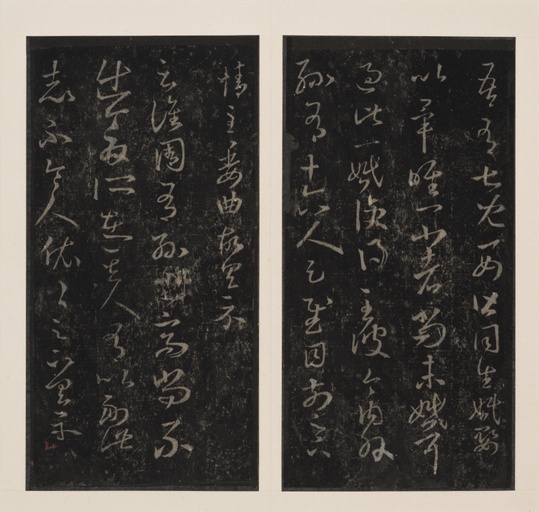 吾有七兒一女皆同生婚娶
以畢唯一小者尚未婚耳
過此一婚便得至彼今內外
孫有十六人足慰目前足下
情至委曲故具示
云譙周有孫高尚不
出今為所在其人有以副此
志不令人依依足下具示